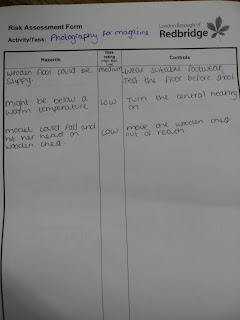 London Borough of
Redbridge
Risk Assessment Form
Activity/Task: Photography for magazine
Hazards
Risk rating
Controls
wooden floor could be
slippy.
medium
wear suitable footwear,
test the floor before shoot
might be below a
warm temperature
LOW
Turn the central heating
on
model could fall and
hit her head on
wooden chest.
LOW
move the wooden chest
out of reach